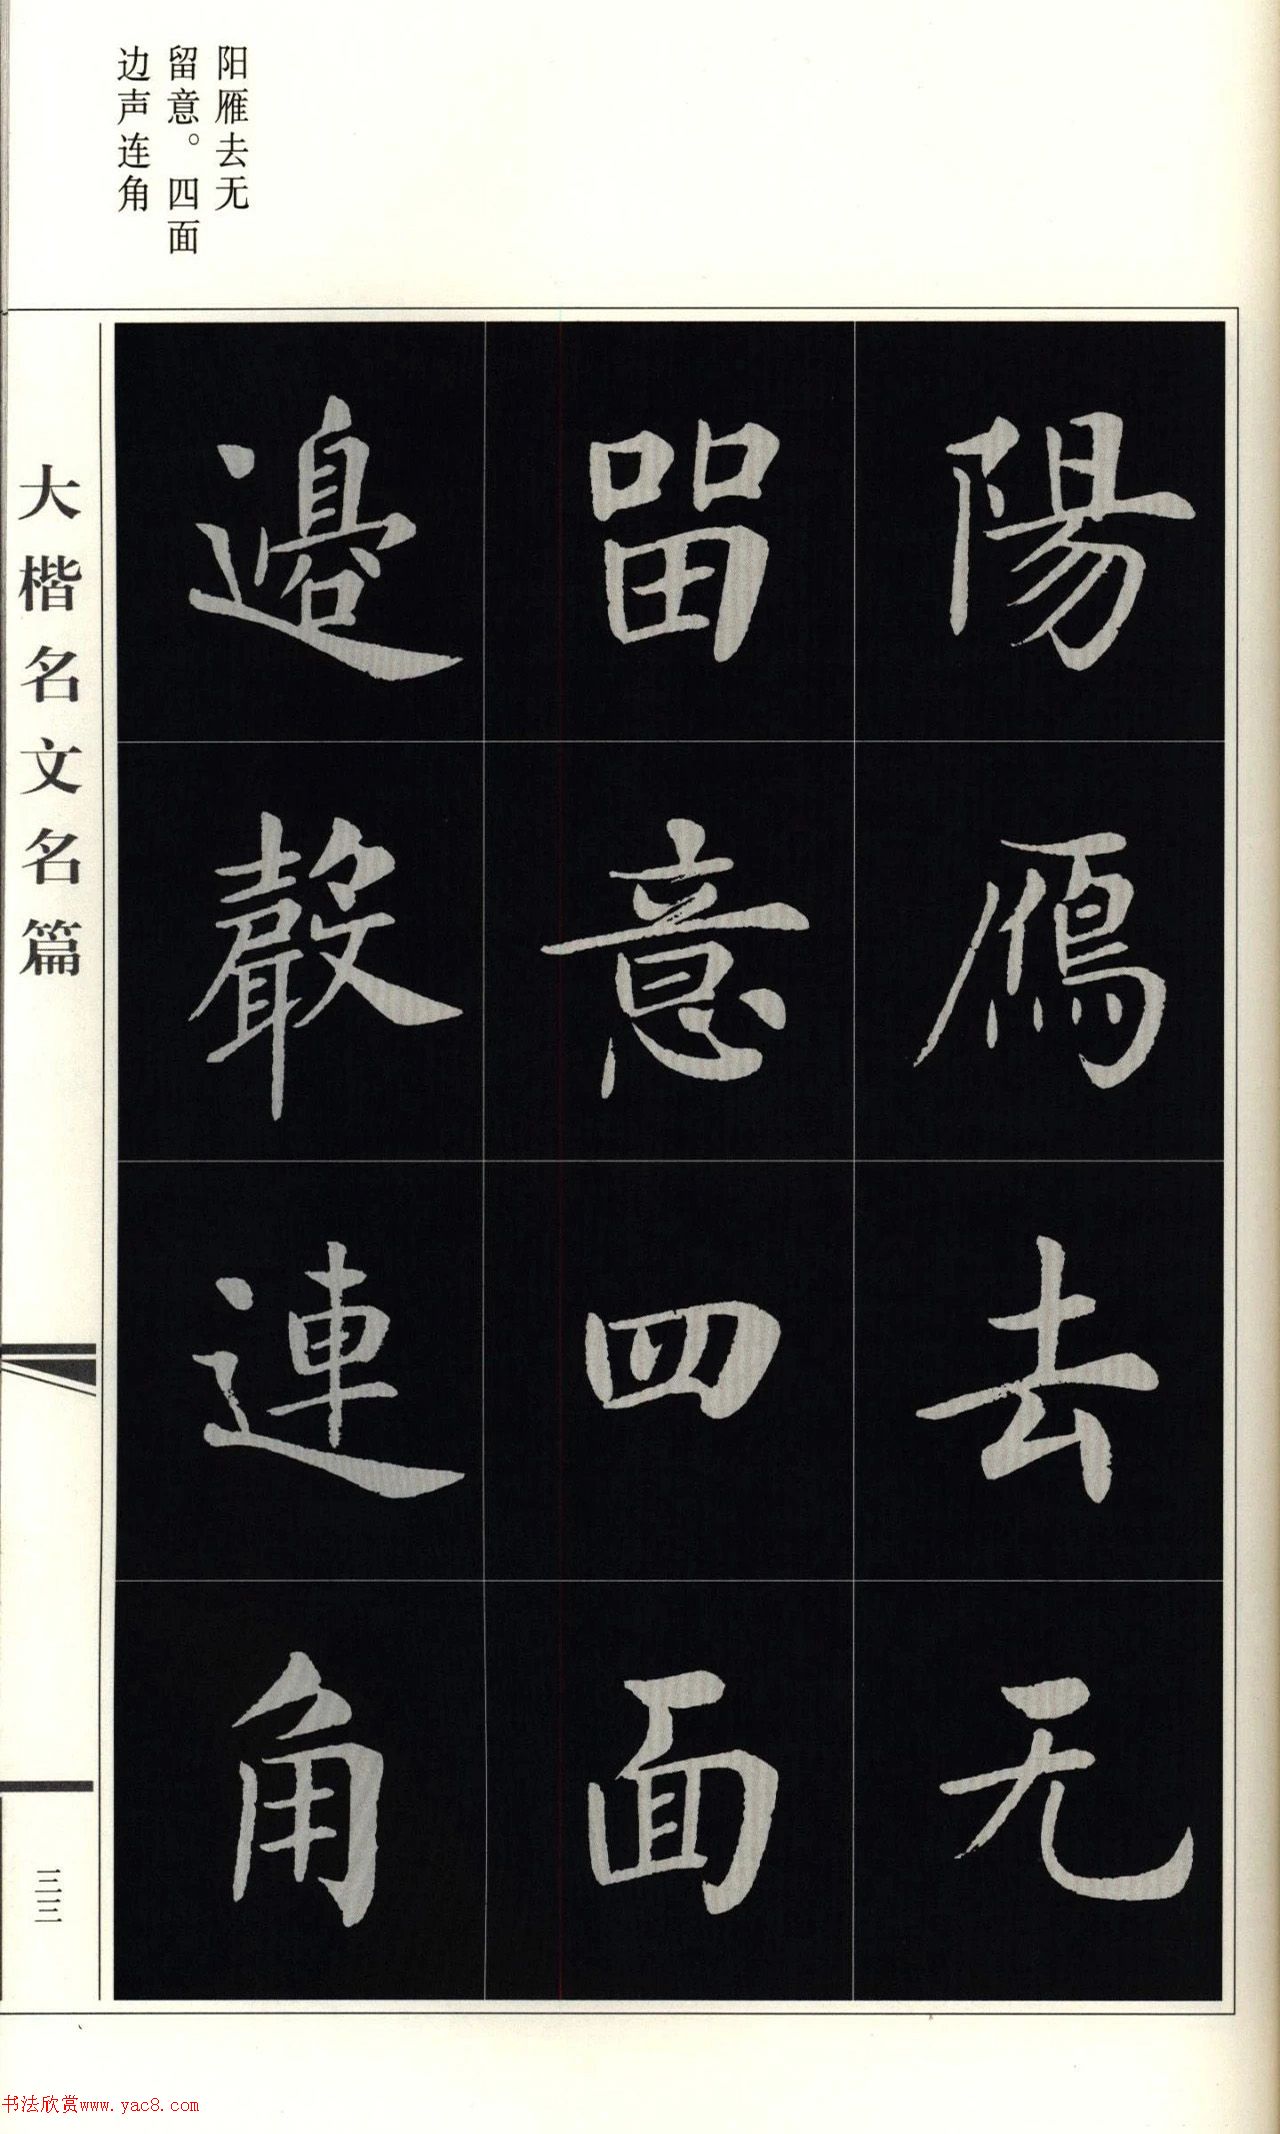 阳雁去无
留意。四面
边声连角
陽鴈去无
畱意四面
邊聲連角
大楷名文名篇
三三
书法欣赏www.yac8.com